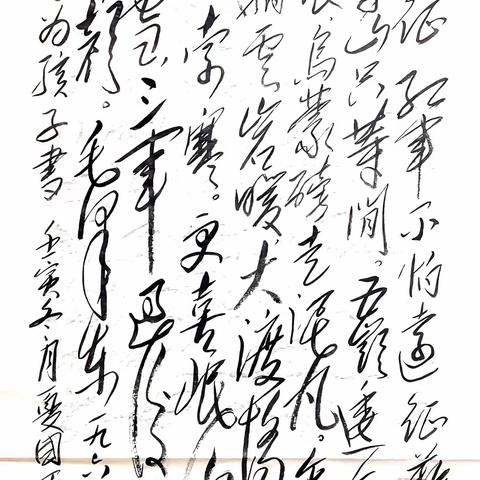 征 红军不怕远征难
山只等闲。五嶺逶
浪乌蒙磅走泥丸。
云岩暖大渡桥
索寒。更喜岷
雪三军过后
颜。毛泽东一九六
为孩子書 壬寅冬月 爱国